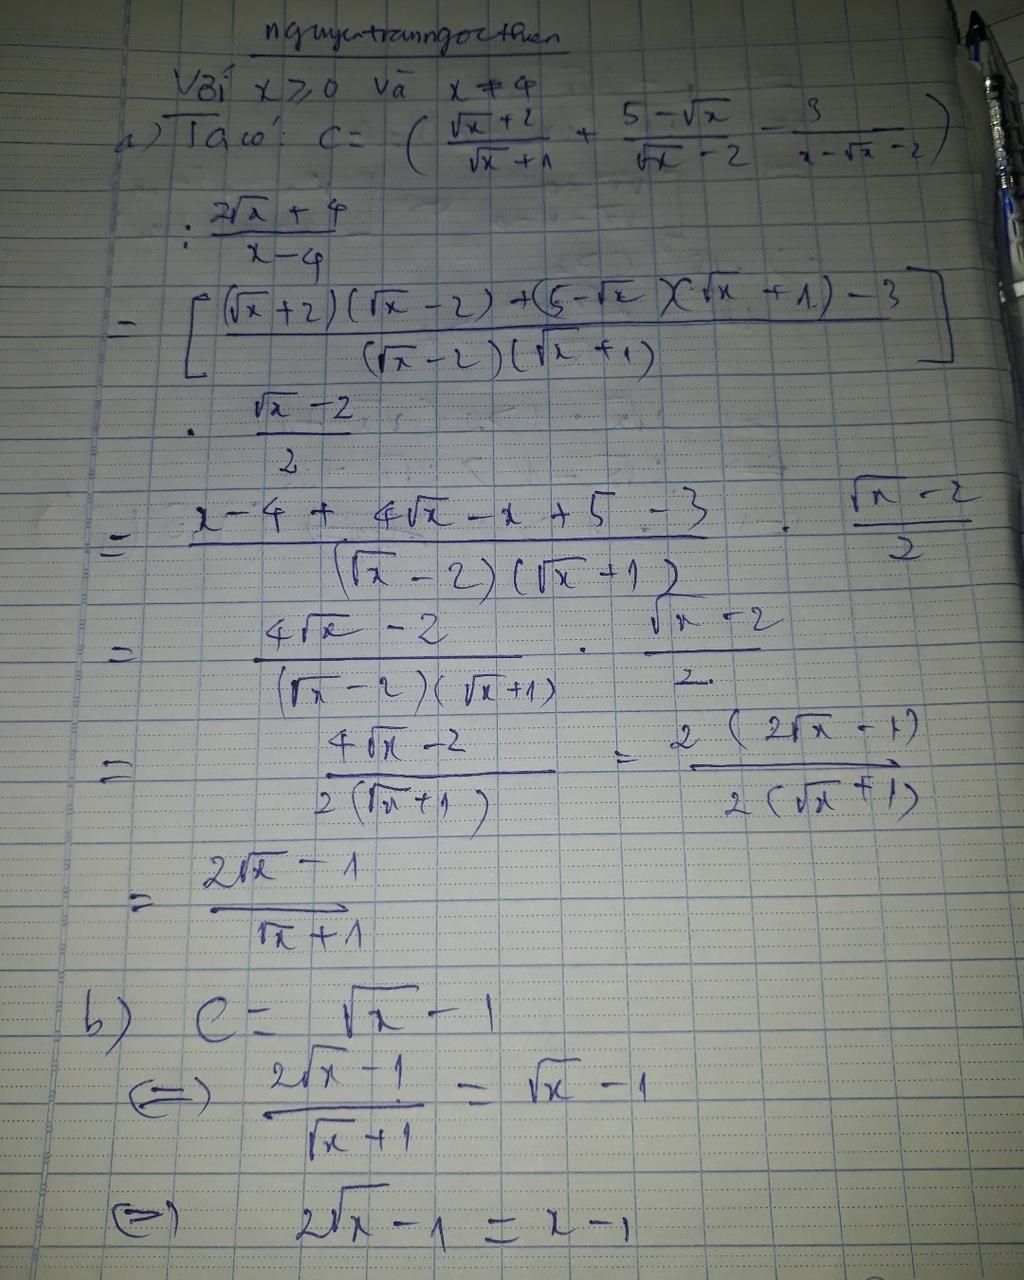 nguyentranngocthien
Với x ≥ 0 và x ≠ 4
a) Ta có: C = ( (√x + 2)/(√x + 1) + (5 - √x)/(√x - 2) - 3/(x - √x - 2) )
: (2√x + 4)/(x - 4)
= [ ((√x + 2)(√x - 2) + (5 - √x)(√x + 1) - 3)/((√x - 2)(√x + 1)) ]
. (√x - 2)/2
= (x - 4 + 4√x - x + 5 - 3)/((√x - 2)(√x + 1)) . (√x - 2)/2
= (4√x - 2)/((√x - 2)(√x + 1)) . (√x - 2)/2
= (4√x - 2)/(2(√x + 1)) = 2(2√x - 1)/(2(√x + 1))
= (2√x - 1)/(√x + 1)
b) C = √x - 1
(=) (2√x - 1)/(√x + 1) = √x - 1
(=) 2√x - 1 = x - 1